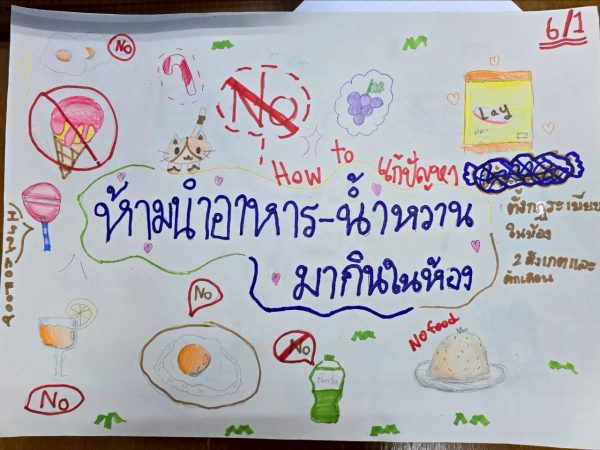 6/1
No
No
Lay
How to แก้ปัญหา
ห้ามนำอาหาร-น้ำหวาน
มากินในห้อง
1 ตั้งกฎระเบียบ
ในห้อง
2 สังเกตและ
ตักเตือน
No
No
No
fanta
No food